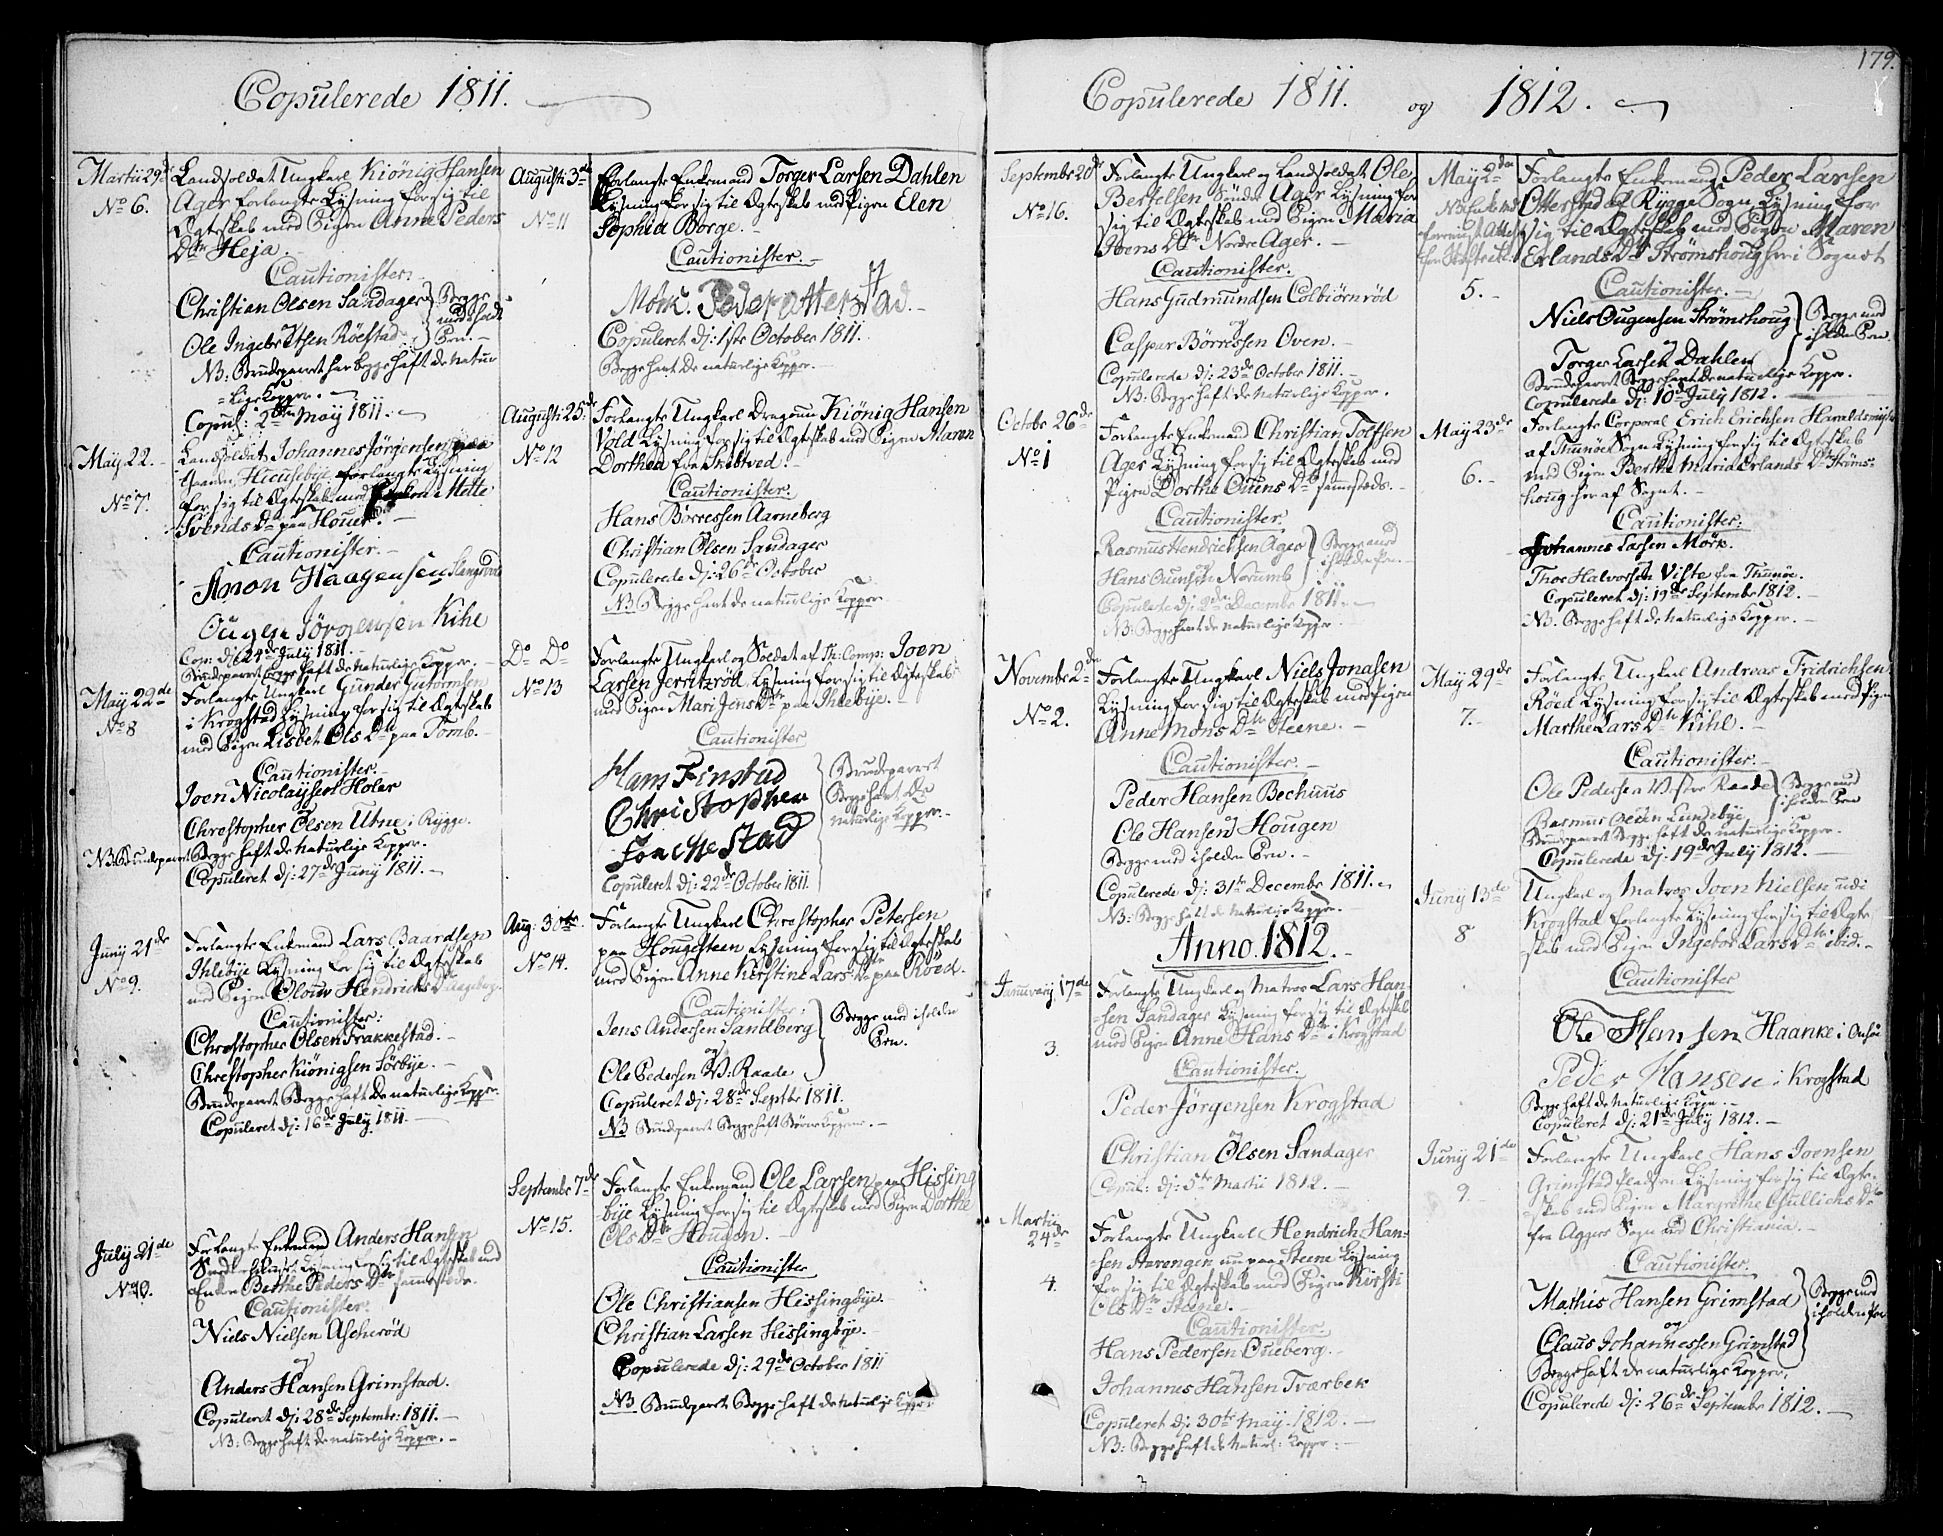 Copulerede 1811.
Martii 29de
No 6.
Landsoldat Ungkarl Kiönig Hansen
Ager forlangte Lysning for sig til
Ægteskab med Pigen Anne Peders
Dtr Heja.
Cautionister:
Christian Olsen Sandager
Ole Ingebretsen Röestad
Begge
med iholdt
Pen.
NB: Brudeparret har begge haft de natur
=lige Kopper.
Copul: 2den May 1811.
May 22.
No 7.
Landsoldat Johannes Jörgensen paa
Gaarden Huusebye forlangte Lysning
for sig til Ægteskab med Mette
Svends Dtr paa Houer.
Cautionister.
Anon Haagensen
Ougen Jörgensen Kihl
Cop: dj: 24de July 1811.
Brudeparret Begge haft de Naturlige Kopper.
May 22de
No 8
Forlangte Ungkarl Gunder
i Krogstad Lysning for sig til Ægteskab
med Pigen Lisbet Ols Dtr paa Tomb.
Cautionister.
Joen Nicolaysen Holer
og
Christopher Olsen Utne i Rygge.
NB: Brudeparret Begge haft de Naturlige Kopper.
Copuleret dj: 27de Juny 1811.
Juny 21de
No 9.
Forlangte Enkemand Lars Baardsen
Ihlebye Lysning for sig til Ægteskab
med Pigen Olour Hendrichs Dtr
Cautionister:
Christopher Olsen Frakkestad.
Christopher Kiönigsen Sörbye.
Brudeparret Begge haft De naturlige Kopper.
Copuleret dj: 16de July 1811.
July 21de
No 10.
Forlangte Enkemand Anders Hansen
Lysning for sig til Ægteskab med
Enken Berthe Peders Dtr sammesteds.
Cautionister.
Niels Nielsen Ascheröd
og
Anders Hansen Grimstad.
Copuleret dj: 28de Septembr: 1811.
NB: Begge haft de naturlige Kopper.
Augusti 3de
No 11
Forlangte Enkemand Torger Larsen Dahlen
Lysning for sig til Ægteskab med Pigen Elen
Sophia Borge.
Cautionister.
Mörk. Peder otterstad.
Copuleret dj: 1ste October 1811.
Begge havt De naturlige Kopper.
Augusti 25de
No 12
Forlangte Ungkarl Dragoun Kiönig Hansen
Vold Lysning for sig til Ægteskab med Pigen Maren
Dorthea fra Skibtved.
Cautionister.
Hans Börresen Aarneberg
og
Christian Olsen Sandager
Copulerede dj: 26de October
NB Begge havt de naturlige Kopper.
Do Do
No 13
Forlangte Ungkarl og Soldat af Th: Comp: Joen
Larsen Jerritzröd Lysning for sig til Ægteskab
med Pigen Mari Jens Dtr paa Ihlebye.
Cautionister
Hans Finstad
Christopher
Frackestad
Brudeparret
Begge havt De
naturlige Kopper.
Copuleret dj: 22de October 1811.
Aug: 30te
No 14.
Forlangte Ungkarl Christopher Petersen
paa Hougsteen Lysning for sig til Ægteskab
med Pigen Anne Kerstine Lars Dtr paa Röed.
Cautionister:
Jens Andersen Sandberg
og
Ole Pedersen V: Raade
Begge med iholden
Pen.
Copuleret dj: 28de Septbr 1811.
NB Brudeparret Begge haft Börne Kopperne.
Septembr 7de
No 15.
Forlangte Enkemand Ole Larsen paa Hissing
bye Lysning for sig til Ægteskab med Pigen Dorthe
Ols Dtr Hougen.
Cautionister
Ole Christiansen Hissingbye.
Christian Larsen Hissingbye.
Copulerede dj: 29de October 1811
NB Brudeparret Begge haft de Naturlige Kopper
179.
Copulerede 1811. og 1812.
Septembr 20de
No 16.
Forlangte Ungkarl og Landsoldat Ole
Bertelsen Söndre Ager Lysning for
sig til Ægteskab med Pigen Maria
Ibens Dtr Nordre Ager.
Cautionister.
Hans Gudmundsen Colbiörnröd
og
Caspar Börresen Oven.
Copulerede dj: 23de October 1811.
NB: Begge haft de Naturlige Kopper.
Octobr 26de
No 1
Forlangte Enkemand Christian Tolfsen
Ager Lysning for sig til Ægteskab med
Pigen Dorthe Ouens Dtr sammesteds.
Cautionister.
Rasmus Hendrichsen Ager
og
Hans Ouensen Norumb
Begge med
iholden Pen.
Copulerte dj: 2de Decembr 1811.
NB: Begge havt de naturlige Kopper.
Novembr 2de
No 2.
Forlangte Ungkarl Niels Jonasen
Lysning for sig til Ægteskab med Pigen
Anne Mons Dtr Steene.
Cautionister.
Peder Hansen Bechuus
og
Ole Hansen Hougen
Begge med iholden Pen.
Copulerede dj: 31te Decembr 1811.
NB: Begge haft de Naturlige Kopper.
Anno. 1812.
Januarij 17de
3.
Forlangte Ungkarl og Matros Lars Han-
=sen Sandager Lysning for sig til Ægteskab
med Pigen Anne Hans Dtr i Krogstad
Cautionister.
Peder Jörgensen Krogstad
og
Christian Olsen Sandager
Copul: dj: 5te Martii 1812.
Martii
24de
4.
Forlangte Ungkarl Hendrich Han-
=sen Aarengen nu paa Steene Lysning
for sig til Ægteskab med Pigen Kirsti
Ols Dtr Steene.
Cautionister
Hans Pedersen Oueberg.
og
Johannes Hansen Tværbek
Copuleret dj: 30te May 1812.
NB: Begge haft de Naturl: Kopper.
May 2den
5.
Forlangte Enkemand Peder Larsen
Otterstad af Rygge Sogn Lysning for
sig til Ægteskab med Pigen Maren
Erlands Dtr Strömshoug her i Sognet
Cautionister.
Niels Ougensen Strömshoug
og
Torger Larsen Dahlen
Begge med
iholden Pen.
Brudeparret Begge havt De naturlige Kopper.
Copulerede dj: 10de July 1812.
May 23de
6.
Forlangte Corporal Erich Erichsen
af Thunöe Sogn Lysning for sig til Ægteskab
med Pigen Berthe Erlands Dtr Ströms-
houg her af Sognet.
Cautionister:
Johannes Larsen Mörk.
og
Thor Halvorsen Viste fra Thunöe.
Copuleret dj: 19de Septembr 1812.
NB. Begge haft de Naturlige Kopper.
May 29de
7.
Forlangte Ungkarl Andreas Fridrichsen
Röed Lysning for sig til Ægteskab med Pigen
Marthe Lars Dtr Kihl.
Cautionister.
Ole Pedersen Vestre Raade
Rasmus Olsen Lundebye
Begge med
iholden Pen
Brudeparret Begge haft de Naturlige Kopper.
Copulerede dj: 19de July 1812.
Juny 13de
8
Ungkarl og Matros Joen Nielsen
Krogstad forlangte Lysning for sig til Ægte
skab med Pigen Ingebor Lars Dtr ibid.
Cautionister
Ole Hansen Haanke i Onsöe
Peder Hansen i Krogstad
Begge haft de Naturlige Kopper.
Copuleret dj: 21de July 1812.
Juny 21de
9.
Forlangte Ungkarl Hans Joensen
Grimstad Lysning for sig til Ægte-
skab med Pigen Margrethe Gullichs Dtr
fra Aggers Sogn ved Christiania.
Cautionister.
Mathis Hansen Grimstad
og
Claus Johannessen Grimstad
Begge med
iholden Pen
Begge haft de naturlige Kopper.
Copulerede dj: 26de Septembr 1812.